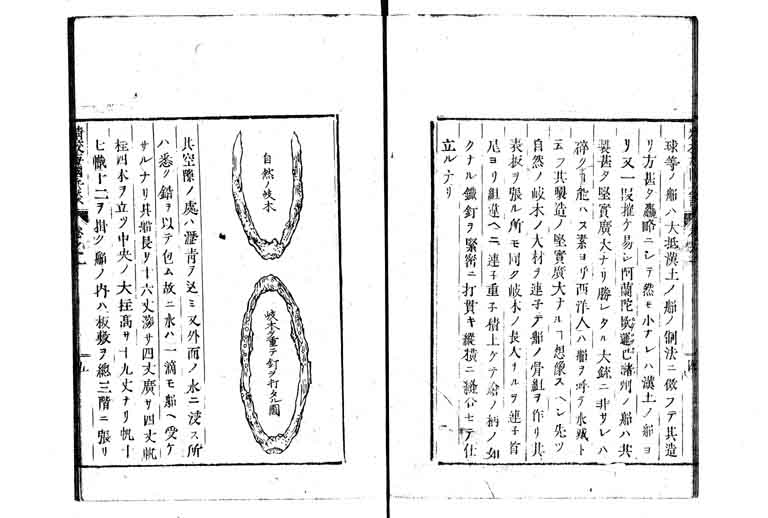 球等ノ船ハ大抵漢土ノ船ノ制法ニ倣フテ其造
リ方甚タ麤略ニシテ然モ小ナレハ漢土ノ船ヨ
リ又一段摧ケ易シ阿蘭陀欧邏巴諸州ノ船ハ其
製甚タ堅實廣大ナリ勝レタル大銃ニ非サレハ
碎クヿ能ハス素ヨリ西洋人ハ船ヲ呼テ水城ト
云フ其製造ノ堅實廣大ナルヿ想像スヘシ先ツ
自然ノ岐木ノ大材ヲ連子テ船ノ骨組ヲ作リ其
表板ヲ張ル所モ同ク岐木ノ長大ナルヲ連子首
尾ヨリ組違ヘニ連子重子積上ケテ鎗ノ柄ノ如
クナル鐵釘ヲ緊密ニ打貫キ縱横ニ縫合セテ仕
立ルナリ
自然ノ岐木
岐木ヲ重テ釘ヲ打タル圖
其空隙ノ處ハ瀝青ヲ込ミ又外面ノ水ニ浸ス所
ハ悉ク鉛ヲ以テ包ム故ニ水ハ一滴モ船ヘ受ケ
サルナリ其船長サ十六丈深サ四丈廣サ四丈帆
柱四本ヲ立ツ中央ノ大柱高サ十九丈ナリ帆十
七幟十二ヲ掛ク船ノ内ハ板敷ヲ總三階ニ張リ